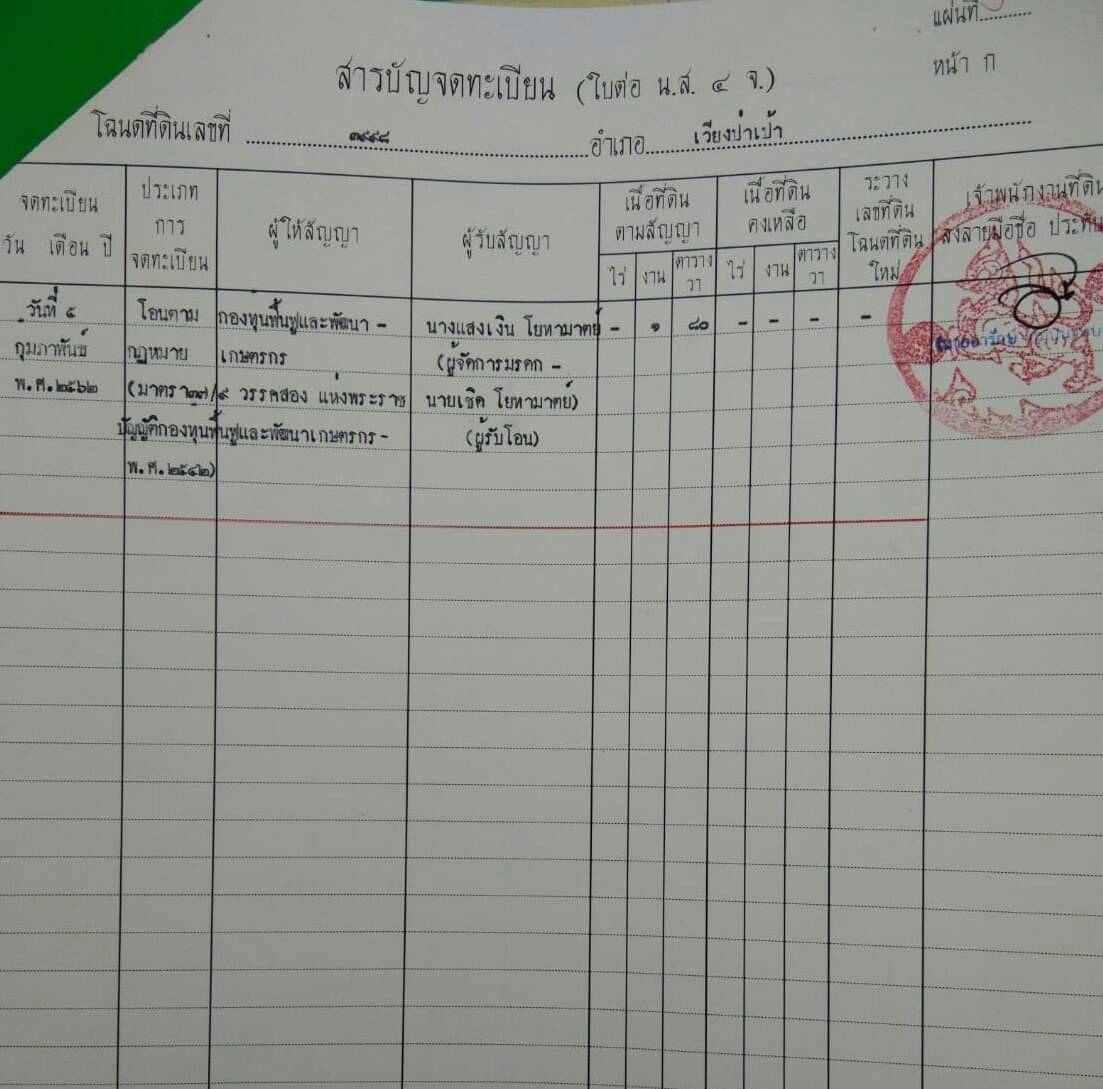 แผ่นที่
หน้า ก
สารบัญจดทะเบียน (ใบต่อ น.ส. ๔ จ.)
โฉนดที่ดินเลขที่ อำเภอ เวียงป่าเป้า
จดทะเบียน
วัน เดือน ปี
ประเภท
การ
จดทะเบียน
ผู้ให้สัญญา
ผู้รับสัญญา
เนื้อที่ดิน
ตามสัญญา
ไร่ งาน ตาราง
วา
เนื้อที่ดิน
คงเหลือ
ไร่ งาน ตาราง
วา
ระวาง
เลขที่ดิน
โฉนดที่ดิน
ใหม่
เจ้าพนักงานที่ดิน
ลงลายมือชื่อ ประทับ
วันที่ ๕ โอนตาม กองทุนฟื้นฟูและพัฒนา - นางแสงเงิน โยหามาตย์ - ๑ ๘๐ - - - -
กุมภาพันธ์ กฎหมาย เกษตรกร (ผู้จัดการมรดก -
พ.ศ.๒๕๖๒ (มาตรา ๓๗/๙ วรรคสอง แห่งพระราช นายเชิด โยหามาตย์)
บัญญัติกองทุนฟื้นฟูและพัฒนาเกษตรกร - (ผู้รับโอน)
พ.ศ.๒๕๔๒)